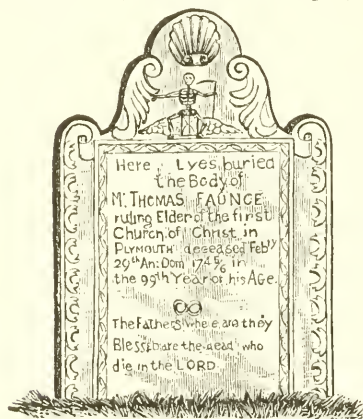 Here Lyes buried
the Body of
Mr THOMAS FAUNCE
ruling Elder of the first
Church of Christ in
PLYMOUTH deceased Febly
29th An: Dom 1745/6 in
the 99th Year of his AGE.
The Fathers where are they
Blessd are the dead who
die in the LORD